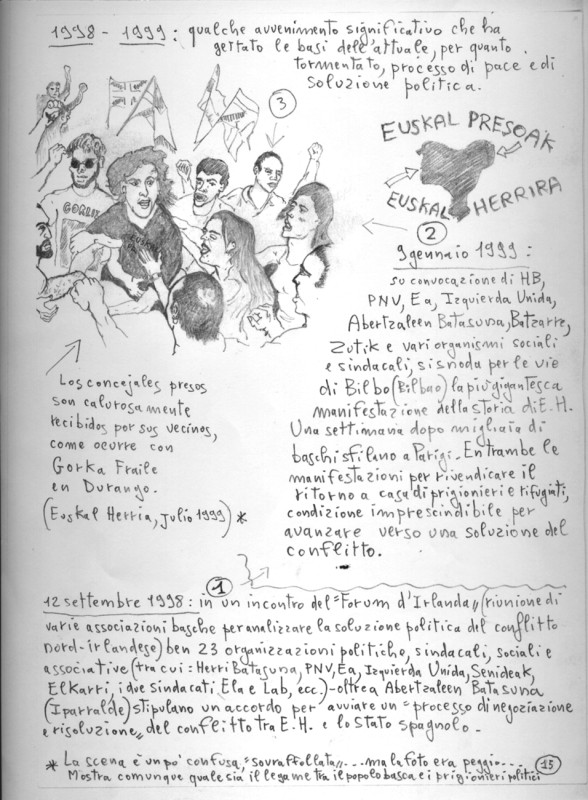 1998 - 1999 : qualche avvenimento significativo che ha
gettato le basi dell'attuale, per quanto
tormentato, processo di pace e di
soluzione politica.
3
EUSKAL PRESOAK
EUSKAL HERRIRA
GORLIZ
EUSKAL
2
9 gennaio 1999 :
su convocazione di HB,
PNV, Ea, Izquierda Unida,
Abertzaleen Batasuna, Batzarre,
Zutik e vari organismi sociali
e sindacali, si snoda per le vie
di Bilbo (Bilbao) la più gigantesca
manifestazione della storia di E.H.
Una settimana dopo migliaia di
baschi sfilano a Parigi. Entrambe le
manifestazioni per rivendicare il
ritorno a casa di prigionieri e rifugiati,
condizione imprescindibile per
avanzare verso una soluzione del
conflitto.
Los concejales presos
son calurosamente
recibidos por sus vecinos,
como ocurre con
Gorka Fraile
en Durango.
(Euskal Herria, Julio 1999) *
1
12 settembre 1998 : in un incontro del "Forum d'Irlanda" (riunione di
varie associazioni basche per analizzare la soluzione politica del conflitto
nord-irlandese) ben 23 organizzazioni politiche, sindacali, sociali e
associative (tra cui : Herri Batasuna, PNV, Ea, Izquierda Unida, Senideak,
Elkarri, i due sindacati Ela e Lab, ecc.) - oltre a Abertzaleen Batasuna
(Iparralde) stipulano un accordo per avviare un "processo di negoziazione
e risoluzione" del conflitto tra E.H. e lo stato spagnolo.
* La scena è un po' confusa, "sovraffollata"... ma la foto era peggio...
Mostra comunque quale sia il legame tra il popolo basco e i prigionieri politici
15